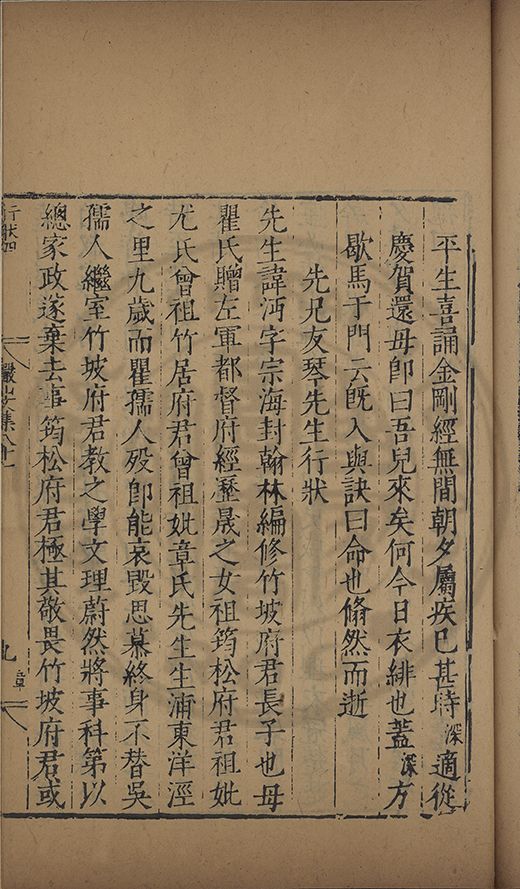 平生喜誦金剛經無間朝夕屬疾已甚時深適從
慶賀還母卽曰吾兒來矣何今日衣緋也蓋深方
歇馬于門云旣入與訣曰命也翛然而逝
先兄友琴先生行狀
先生諱沔字宗海封翰林編修竹坡府君長子也母
瞿氏贈左軍都督府經歷晟之女祖筠松府君祖妣
尤氏曾祖竹居府君曾祖妣章氏先生生浦東洋涇
之里九歲而瞿孺人歿卽能哀毀思慕終身不替吳
孺人繼室竹坡府君教之學文理蔚然將事科第以
總家政遂棄去事筠松府君極其敬畏竹坡府君或
行狀
儼山文集八十一
九